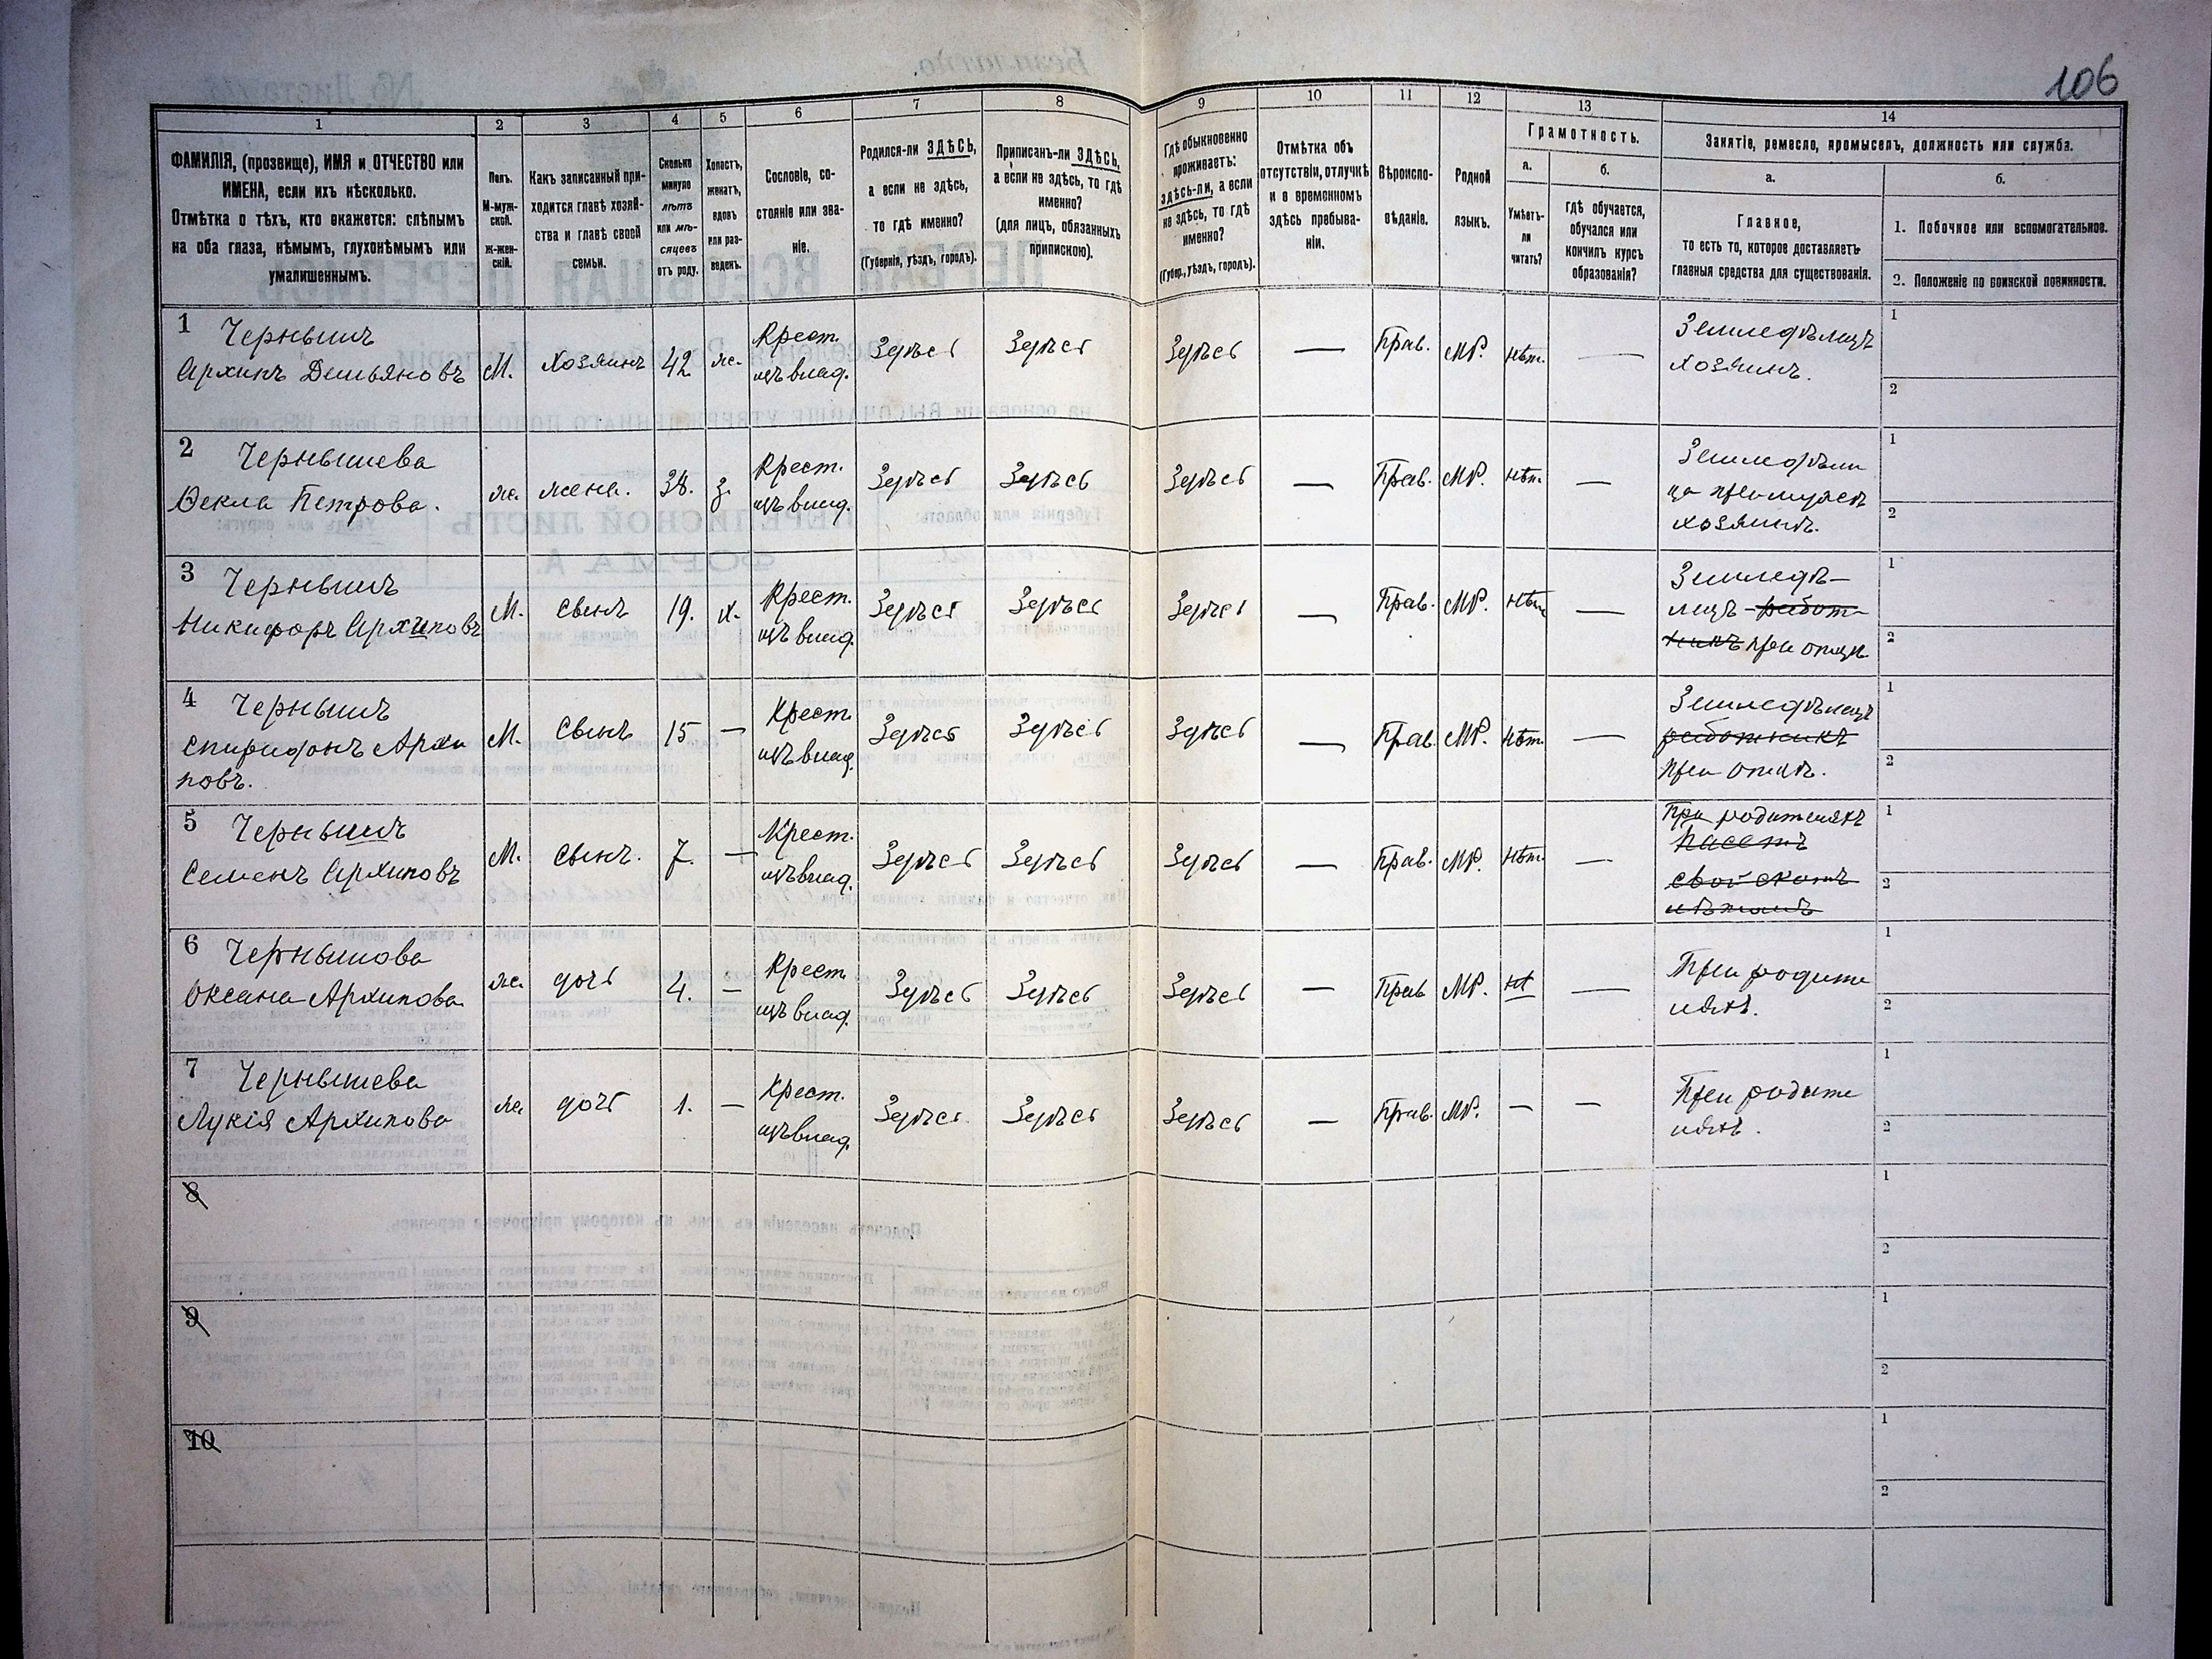 106
1 2 3 4 5 6 7 8 9 10 11 12 13 14
ФАМИЛІЯ, (прозвище), ИМЯ и ОТЧЕСТВО или
ИМЕНА, если ихъ нѣсколько.
Отмѣтка о тѣхъ, кто окажется: слѣпымъ
на оба глаза, нѣмымъ, глухонѣмымъ или
умалишеннымъ.
Полъ.
М-муж-
ской.
ж-жен-
скій.
Какъ записанный при-
ходится главѣ хозяй-
ства и главѣ своей
семьи.
Сколько
минуло
лѣтъ
или мѣ-
сяцевъ
отъ роду.
Холостъ,
женатъ,
вдовъ
или раз-
веденъ.
Сословіе, со-
стояніе или зва-
ніе.
Родился-ли ЗДѢСЬ,
а если не здѣсь,
то гдѣ именно?
(Губернія, уѣздъ, городъ).
Приписанъ-ли ЗДѢСЬ,
а если не здѣсь, то гдѣ
именно?
(для лицъ, обязанныхъ
припискою).
Гдѣ обыкновенно
проживаетъ:
здѣсь-ли, а если
не здѣсь, то гдѣ
именно?
(Губер., уѣздъ, городъ).
Отмѣтка объ
отсутствіи, отлучкѣ
и о временномъ
здѣсь пребыва-
ніи.
Вѣроиспо-
вѣданіе.
Родной
языкъ.
Грамотность.
а.
Умѣетъ-
ли
читать?
б.
гдѣ обучается,
обучался или
кончилъ курсъ
образованія?
Занятіе, ремесло, промыселъ, должность или служба.
а.
Главное,
то есть то, которое доставляетъ
главныя средства для существованія.
б.
1. Побочное или вспомогательное.
2. Положеніе по воинской повинности.
1 Чернышъ
Архипъ Демьяновъ М. Хозяинъ 42 ж. Крест.
изъ влад. Здѣсь Здѣсь Здѣсь — Прав. МР. нѣт. — Земледѣлецъ
хозяинъ.
1
2
2 Чернышева
Ѳекла Петрова. ж. жена. 38. з. Крест.
изъ влад. Здѣсь Здѣсь Здѣсь — Прав. МР. нѣт. —
хозяинѣ.
1
2
3 Чернышъ
Никифоръ Архиповъ М. сынъ 19. х. Крест.
изъ влад. Здѣсь Здѣсь Здѣсь — Прав. МР. нѣт. — Земледѣ-
лецъ - работ-
никъ при отцѣ
1
2
4 Чернышъ
Спиридонъ Архи
повъ. М. Сынъ 15 — Крест.
изъ влад. Здѣсь Здѣсь Здѣсь — Прав. МР. нѣт. — Земледѣлецъ
работникъ
при отцѣ.
1
2
5 Чернышъ
Семенъ Архиповъ М. Сынъ. 7. — Крест.
изъ влад. Здѣсь Здѣсь Здѣсь — Прав. МР. нѣт. — При родителяхъ
пасетъ
свой скотъ
лѣтомъ
1
2
6 Чернышова
Оксана Архипова ж. дочь 4. — Крест.
изъ влад. Здѣсь Здѣсь Здѣсь — Прав МР. нѣт — При родите
ляхъ.
1
2
7 Чернышева
Лукія Архипова ж. дочь 1. — Крест.
изъ влад. Здѣсь Здѣсь Здѣсь — Прав. МР. — — При родите
ляхъ.
1
2
8
1
2
9
1
2
10
1
2